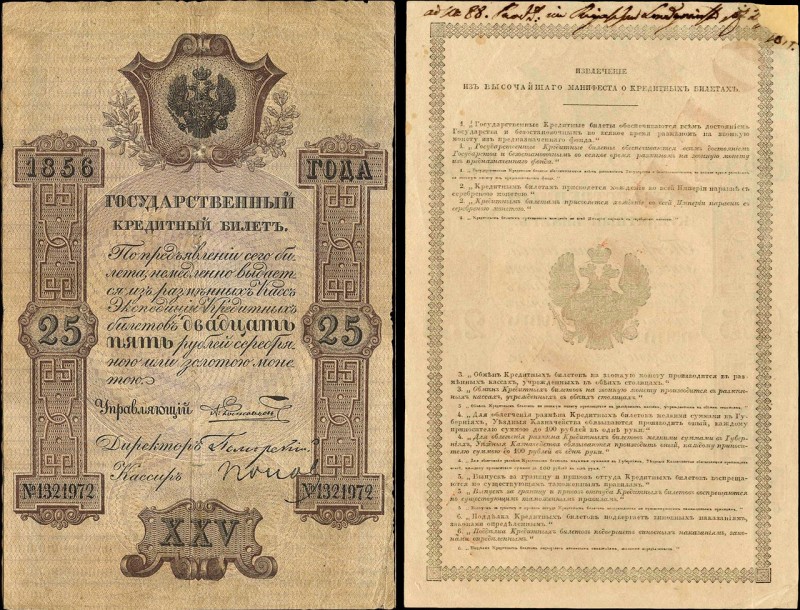 1856 ГОДА
ГОСУДАРСТВЕННЫЙ
КРЕДИТНЫЙ БИЛЕТЪ.
По предъявленіи сего би-
лета, немедленно выдает-
ся изъ размѣнныхъ Кассъ
Экспедиціи Кредитныхъ
билетовъ двадцать
25 25
пять рублей серебря-
ною или золотою моне-
тою.
Управляющій
Директоръ
Кассиръ
№1321972 №1321972
XXV
ИЗВЛЕЧЕНІЕ
ИЗЪ ВЫСОЧАЙШАГО МАНИФЕСТА О КРЕДИТНЫХЪ БИЛЕТАХЪ.
1. „Государственные Кредитные билеты обеспечиваются всѣмъ достояніемъ
Государства и безостановочнымъ во всякое время размѣномъ на звонкую
монету изъ предназначеннаго фонда.“
1. „Государственные Кредитные билеты обеспечиваются всѣмъ достояніемъ
Государства и безостановочнымъ во всякое время размѣномъ на звонкую монету
изъ предназначеннаго фонда.“
2. „Кредитнымъ билетамъ присвояется хожденіе во всей Имперіи наравнѣ съ
серебряною монетою.“
2. „Кредитнымъ билетамъ присвояется хожденіе во всей Имперіи наравнѣ съ
серебряною монетою.“
2. „Кредитнымъ билетамъ присвояется хожденіе во всей Имперіи наравнѣ съ серебряною монетою.“
3. „Обмѣнъ Кредитныхъ билетовъ на звонкую монету производится въ раз-
мѣнныхъ кассахъ, учрежденныхъ въ обѣихъ столицахъ.“
3. „Обмѣнъ Кредитныхъ билетовъ на звонкую монету производится въ размѣн-
ныхъ кассахъ, учрежденныхъ въ обѣихъ столицахъ.“
4. „Для облегченія размѣна Кредитныхъ билетовъ мелкими суммами въ Гу-
берніяхъ, Уѣздныя Казначейства обязываются производить оный, каждому
приносителю суммою до 100 рублей въ однѣ руки.“
4. „Для облегченія размѣна Кредитныхъ билетовъ мелкими суммами въ Губер-
ніяхъ, Уѣздныя Казначейства обязываются производить оный, каждому приноси-
телю суммою до 100 рублей въ однѣ руки.“
5. „Выпускъ за границу и привозъ оттуда Кредитныхъ билетовъ воспреща-
ются по существующимъ таможеннымъ правиламъ.“
5. „Выпускъ за границу и привозъ оттуда Кредитныхъ билетовъ воспрещаются
по существующимъ таможеннымъ правиламъ.“
6. „Поддѣлка Кредитныхъ билетовъ подвергаетъ виновныхъ наказаніямъ,
законами опредѣленнымъ.“
6. „Поддѣлка Кредитныхъ билетовъ подвергаетъ виновныхъ наказаніямъ, зако-
нами опредѣленнымъ.“